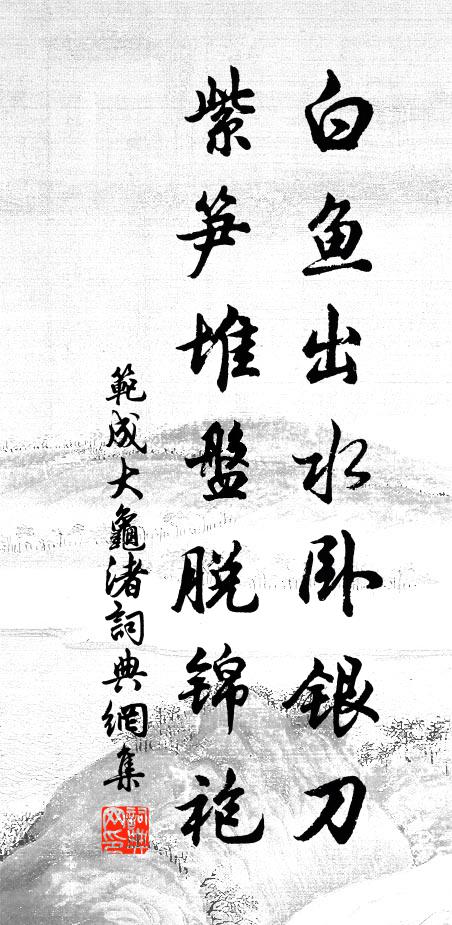 白鱼出水卧银刀
紫笋堆盘脱锦袍
範成大龜渚詞典網集